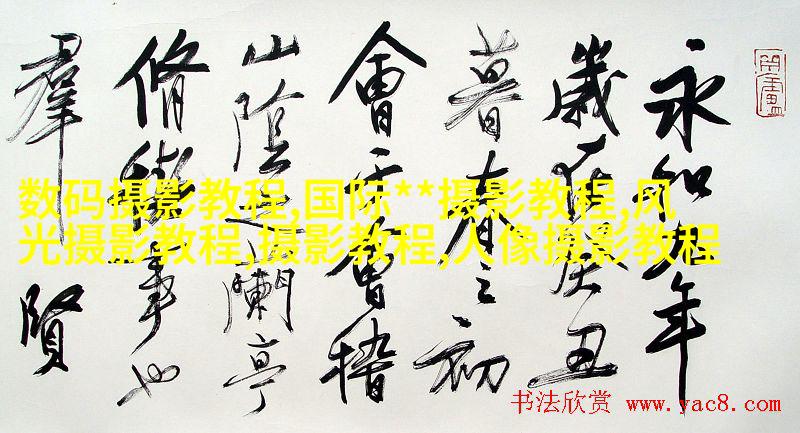 永和九年
歲在癸丑
暮春之初
會于會稽
山陰之蘭亭
脩禊事也
羣賢
数码摄影教程,国际**摄影教程,风
光摄影教程,摄影教程,人像摄影教程
书法欣赏 www.yac8.com